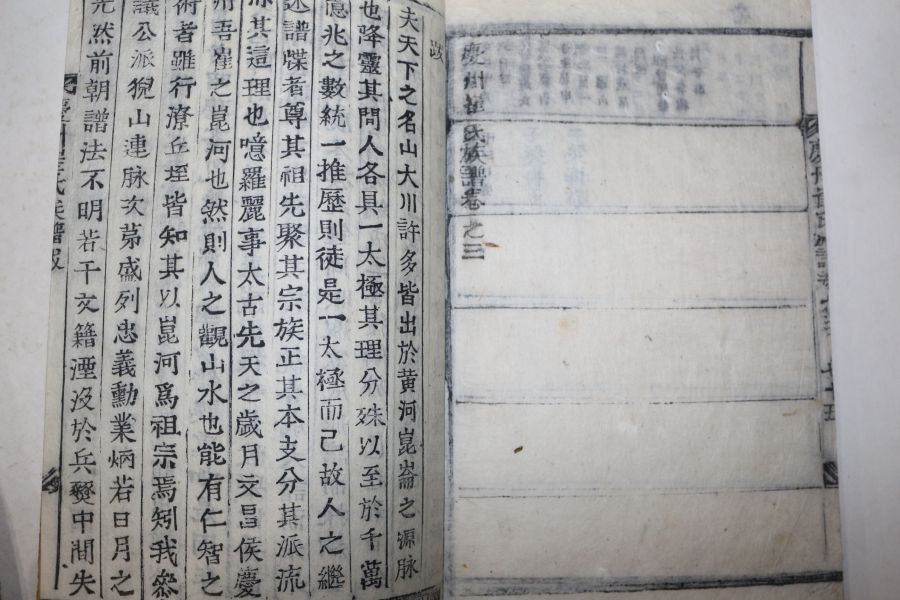 慶州崔氏族譜卷之三
跋
夫天下之名山大川許多皆出於黄河崑崙之源脉
也降靈其間人各具一太極其理分殊以至於千萬
億兆之數統一推歷則徒是一太極而已故人之繼
述譜牒者尊其祖先聚其宗族正其本支分其派流
其這理也噫羅麗事太古先天之歲月文昌侯慶
州吾崔之崑河也然則人之觀山水也能有仁智之
術者雖行潦丘垤皆知其以崑河爲祖宗焉矧我叅
議公派猊山連脉次苐盛列忠義勳業炳若日月之
光然前朝譜法不明若干文籍湮沒於兵燹中間失
慶州崔氏族譜跋